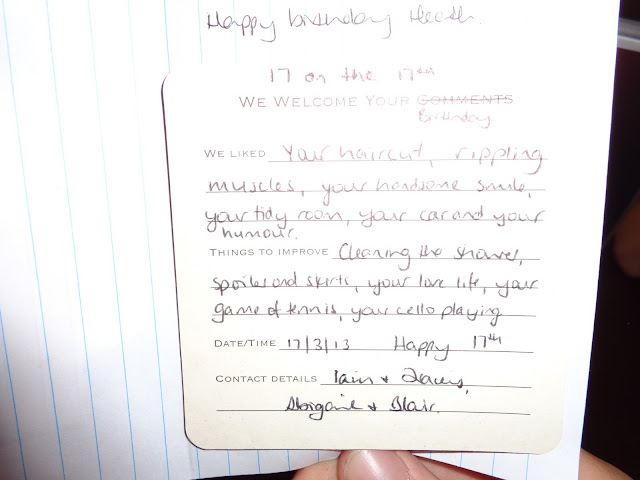 Happy birthday Heath.
17 on the 17th
WE WELCOME YOUR COMMENTS
Birthday
WE LIKED Your haircut, rippling
muscles, your handsome smile,
your tidy room, your car and your
humour.
THINGS TO IMPROVE Cleaning the shower,
spoiler and skirts, your love life, your
game of tennis, your cello playing
DATE/TIME 17/3/13 Happy 17th
CONTACT DETAILS Iain +
Abigail + Blair.